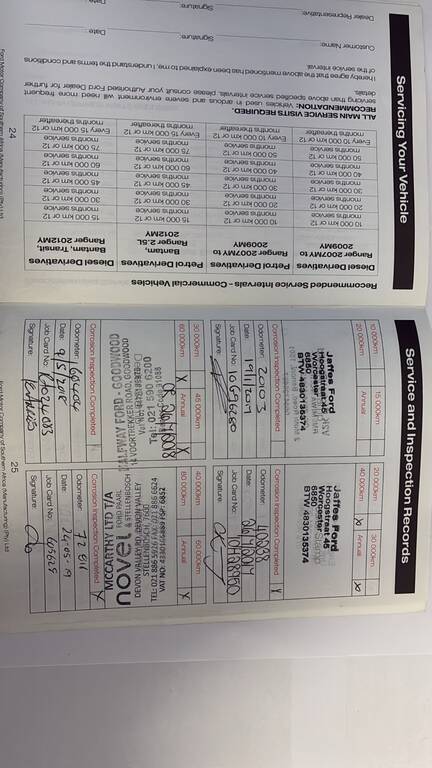 Servicing Your Vehicle
Recommended Service Intervals - Commercial Vehicles
Diesel Derivatives
Ranger 2007MY to
2009MY
Petrol Derivatives
Ranger 2007MY to
2009MY
Petrol Derivatives
Ranger 2.5L
2012MY
Diesel Derivatives
Bantam, Transit,
Ranger 2012MY
10 000 km or 12
months service
10 000 km or 12
months service
15 000 km or 12
months service
15 000 km or 12
months service
20 000 km or 12
months service
20 000 km or 12
months service
30 000 km or 12
months service
30 000 km or 12
months service
30 000 km or 12
months service
30 000 km or 12
months service
45 000 km or 12
months service
45 000 km or 12
months service
40 000 km or 12
months service
40 000 km or 12
months service
60 000 km or 12
months service
60 000 km or 12
months service
50 000 km or 12
months service
50 000 km or 12
months service
75 000 km or 12
months service
75 000 km or 12
months service
Every 10 000 km or 12
months thereafter
Every 10 000 km or 12
months thereafter
Every 15 000 km or 12
months thereafter
Every 15 000 km or 12
months thereafter
ALL MAIN SERVICE VISITS REQUIRED.
RECOMMENDATION: Vehicles used in arduous and severe environment will need more frequent
servicing than above specified service intervals, please consult your Authorised Ford Dealer for further
details.
I hereby agree that the above mentioned has been explained to me, I understand the terms and conditions
of the service interval.
Customer Name: Signature: Date:
Dealer Representative: Signature: Date:
24
Ford Motor Company of Southern Africa (Manufacturing) (Pty) Ltd
Service and Inspection Records
10 000km 15 000km
20 000km Annual
Jaffes Ford
Hoogstraat 45
Worcester
6850
BTW 4830135374
Corrosion Inspection Completed
Odometer: 20103
Date: 19/1/2017
Job Card No:
Signature:
20 000km 30 000km
40 000km Annual X
Jaffes Ford
Hoogstraat 45
Worcester
6850
BTW 4830135374
Corrosion Inspection Completed X
Odometer: 40838
Date:
Job Card No:
Signature:
30 000km 45 000km
60 000km X Annual X
HALFWAY FORD - GOODWOOD
VOORTREKKER ROAD, GOODWOOD
Tel: 021 590 6200
Corrosion Inspection Completed
Odometer:
Date: 9/5/2018
Job Card No:
Signature:
40 000km 60 000km
80 000km Annual X
MCCARTHY LTD T/A
novel FORD PAARL
& STELLENBOSCH
DEVON VALLEY RD, DEVON VALLEY
STELLENBOSCH, 7600
Corrosion Inspection Completed X
Odometer:
Date: 24-05-19
Job Card No:
Signature:
25
Ford Motor Company of Southern Africa (Manufacturing) (Pty) Ltd